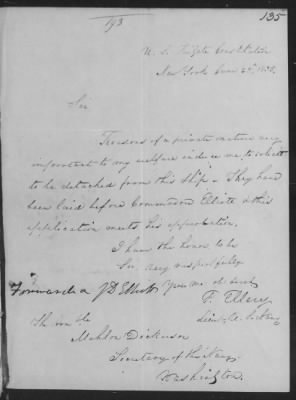 193
135
U. S. Frigate Constitution
New York June 25th 1835.
Sir
Reasons of a private nature very
important to my welfare induce me to solicit
to be detached from this ship. They have
been laid before Commodore Elliott & this
application meets his approbation.
I have the honor to be
Sir very respectfully
Forwarded J D Elliott Your mo. ob Servt
F. Ellery
Lieut U.S. Navy
The Honble
Mahlon Dickerson
Secretary of the Navy
Washington.